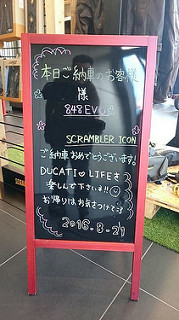 本日ご納車のお客様
様
848EVO
SCRAMBLER ICON
ご納車おめでとうございます!
DUCATI LIFEを
楽しんで下さいネ!!
お帰りはお気をつけて
2016.8.21